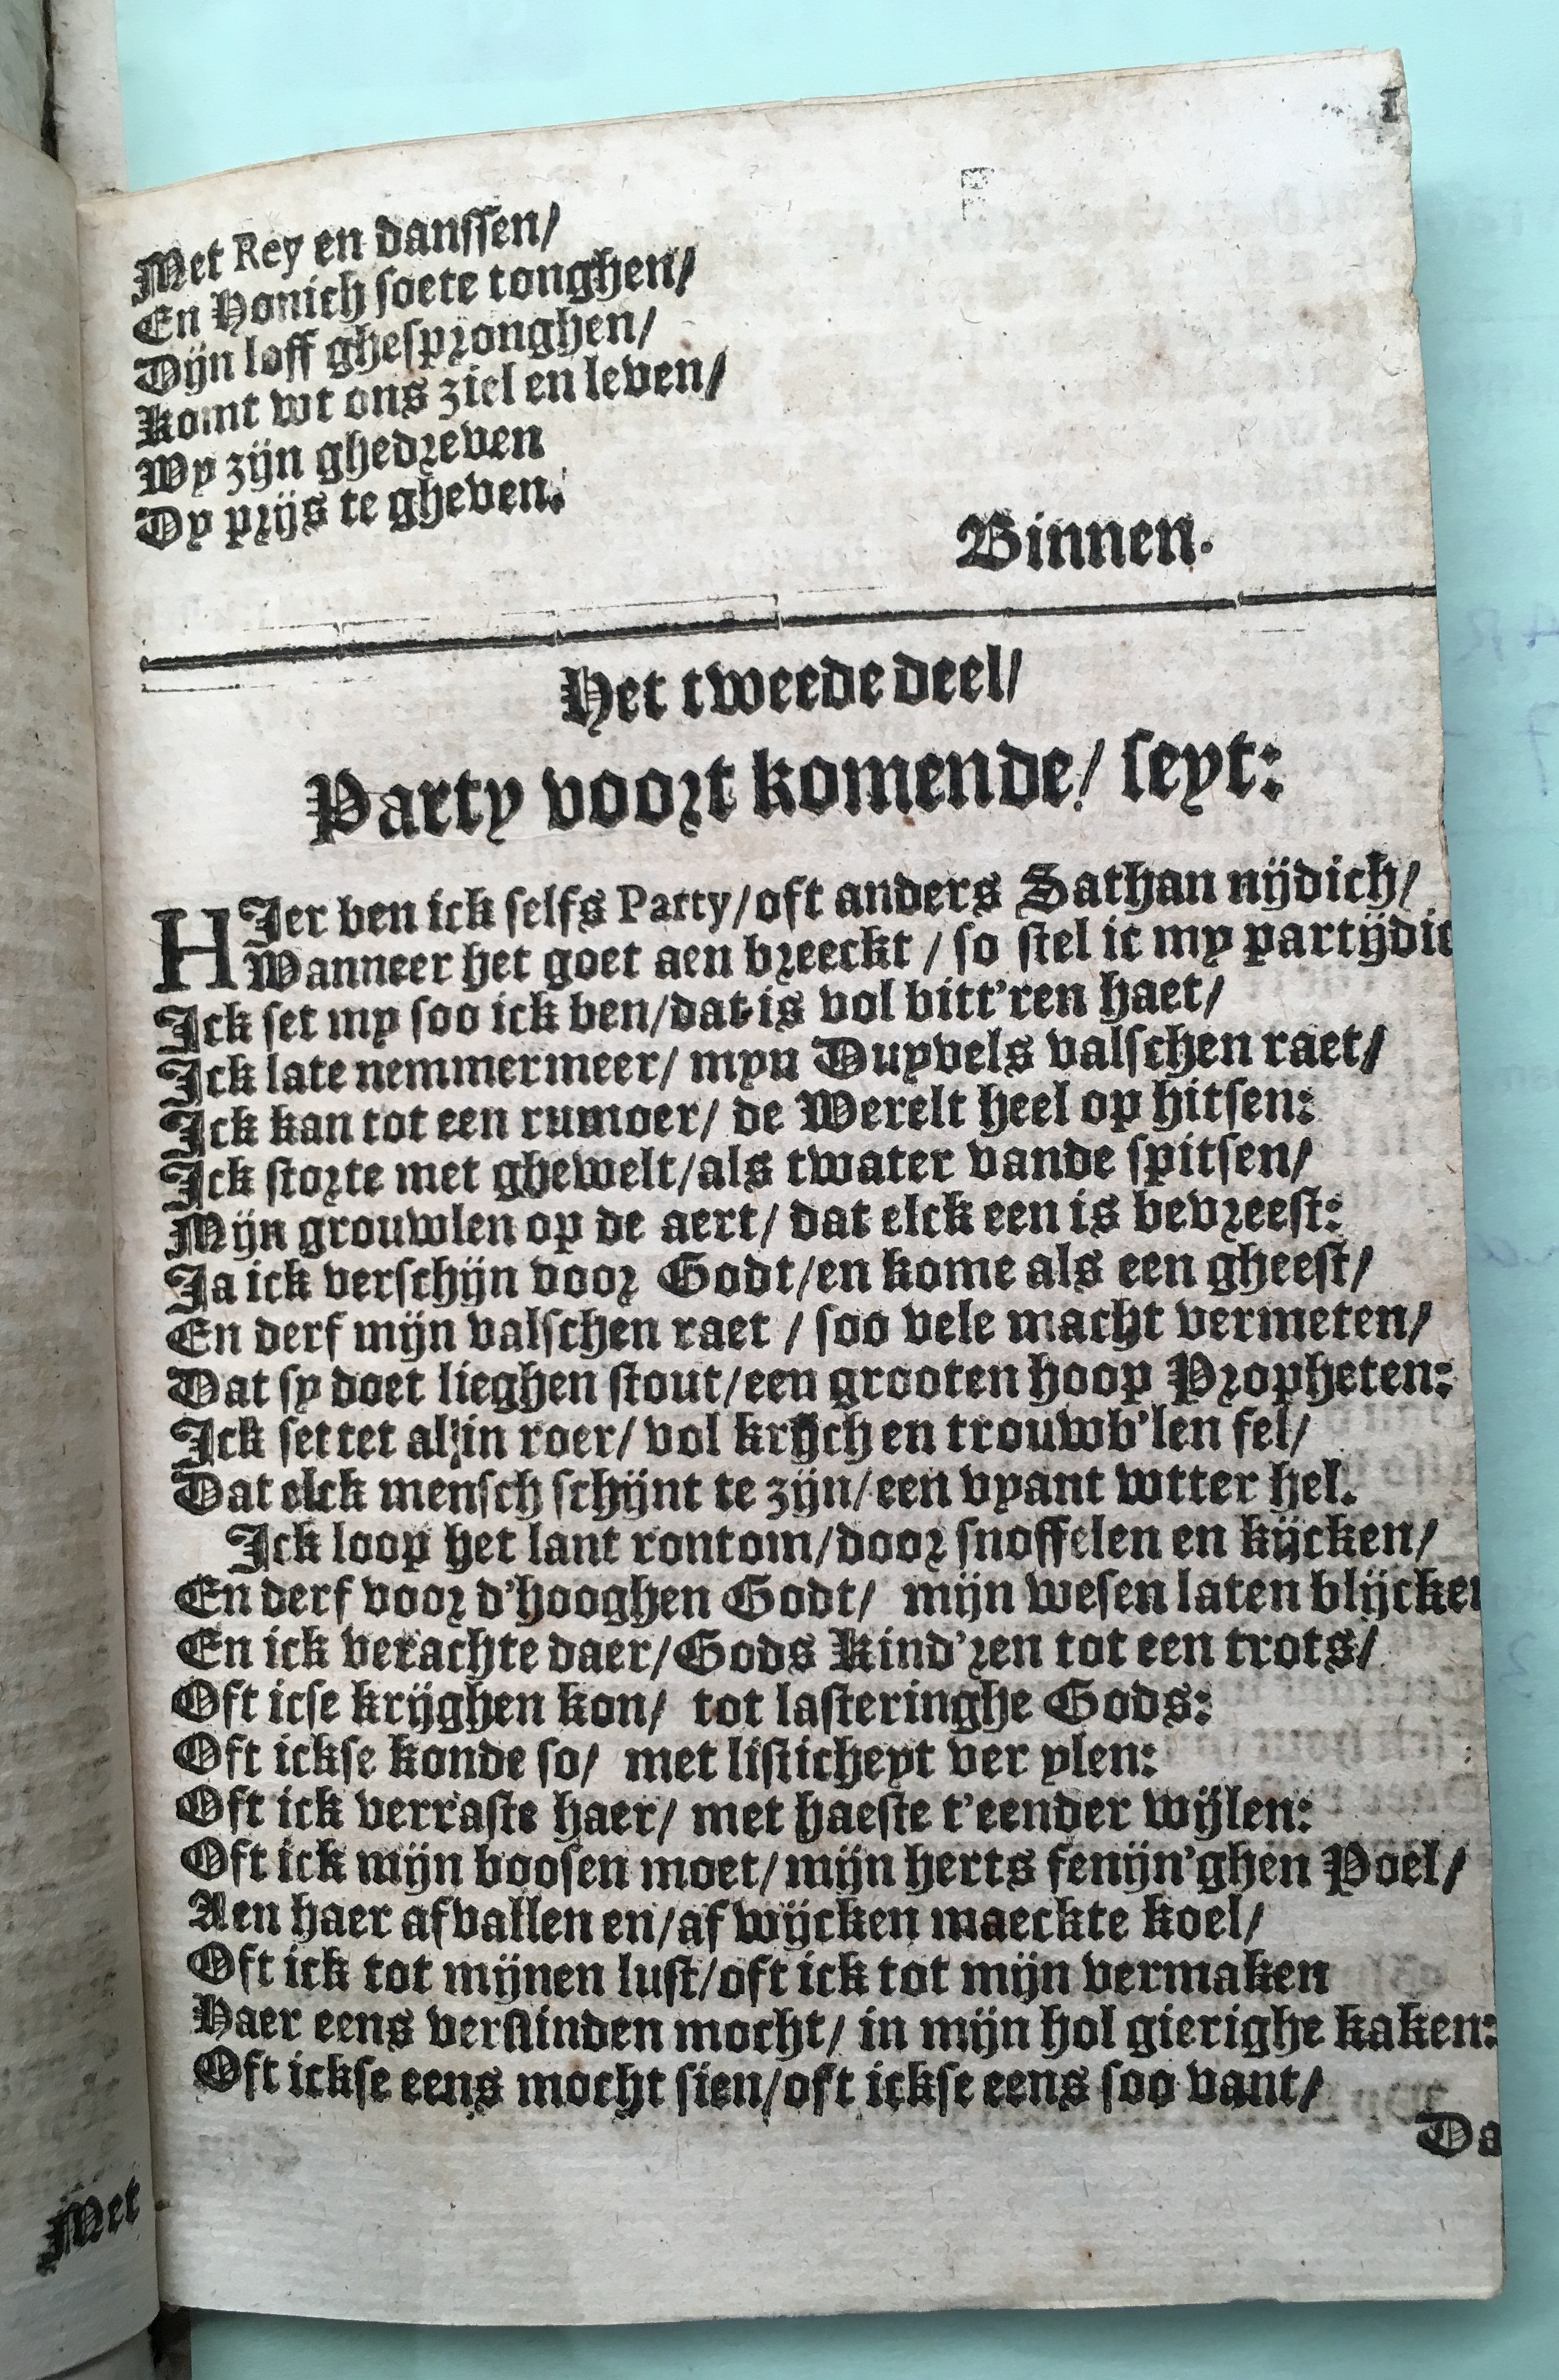 1
Met Rey en danssen/
En Honich soete tonghen/
Dijn loff ghespronghen/
Komt wt ons ziel en leven/
Wy zijn ghedreven
Dy prijs te gheven.
Binnen.
Het tweede deel/
Party voort komende/ seyt:
HIer ben ick selfs Party/oft anders Sathan nijdich/
Wanneer het goet aen breeckt / so stel ic my partijdic
Ick set my soo ick ben/dat is vol bitt'ren haet/
Ick late nemmermeer/ myn Duyvels valschen raet/
Ick kan tot een rumoer/ de Werelt heel op hitsen:
Ick storte met ghewelt/als twater vande spitsen/
Mijn grouwlen op de aert/ dat elck een is bevreest:
Ja ick verschijn voor Godt/en kome als een gheest/
En derf mijn valschen raet / soo vele macht vermeten/
Dat sy doet lieghen stout/een grooten hoop Propheten:
Ick settet al in roer/ vol krijch en trouwb'len fel/
Dat elck mensch schijnt te zijn/een vyant wtter hel.
Ick loop het lant rontom/door snoffelen en kijcken/
En derf voor d'hooghen Godt/ mijn wesen laten blijcken
En ick verachte daer/Gods Kind'ren tot een trots/
Oft icse krijghen kon/ tot lasteringhe Gods:
Oft ickse konde so/ met listicheyt ver ylen:
Oft ick verraste haer/ met haeste t'eender wijlen:
Oft ick mijn boosen moet/mijn herts fenijn'ghen Poel/
Aen haer afvallen en/af wijcken maeckte koel/
Oft ick tot mijnen lust/oft ick tot mijn vermaken
Haer eens verslinden mocht/ in mijn hol gierighe kaken:
Oft ickse eens mocht sien/oft ickse eens soo vant/
Da
Met